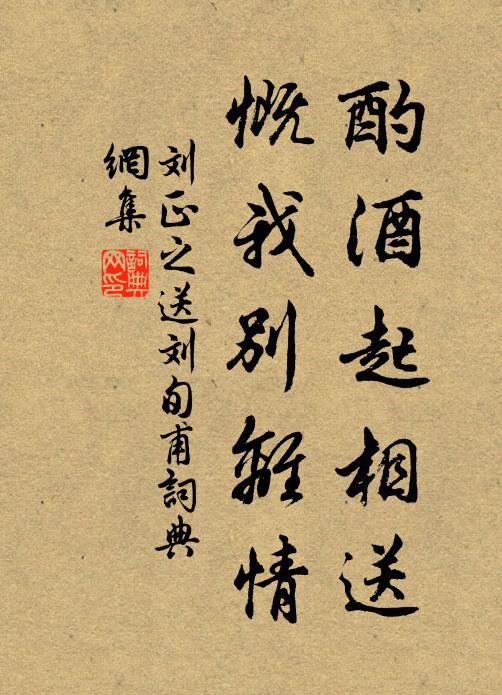 酌酒起相送
慨我别離情
刘正之送刘旬甫詞典
網集
詞典
网印